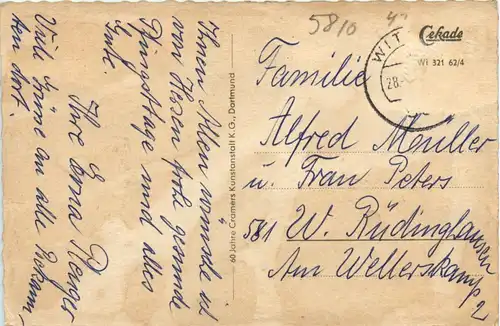 Ihnen Allen wünsche ich
von Herzen frohe gesunde
Pfingsttage und alles
Gute.
Ihre Erna Renger
Viele Grüsse an alle Bekann-
ten dort.
60 Jahre Cramers Kunstanstalt K.G., Dortmund
5810
47
WIT
28.
Cekade
Wi 321 62/4
Familie
Alfred Müller
u. Frau Peters
581 W. Rüdinghausen
Am Wellerskamp 2